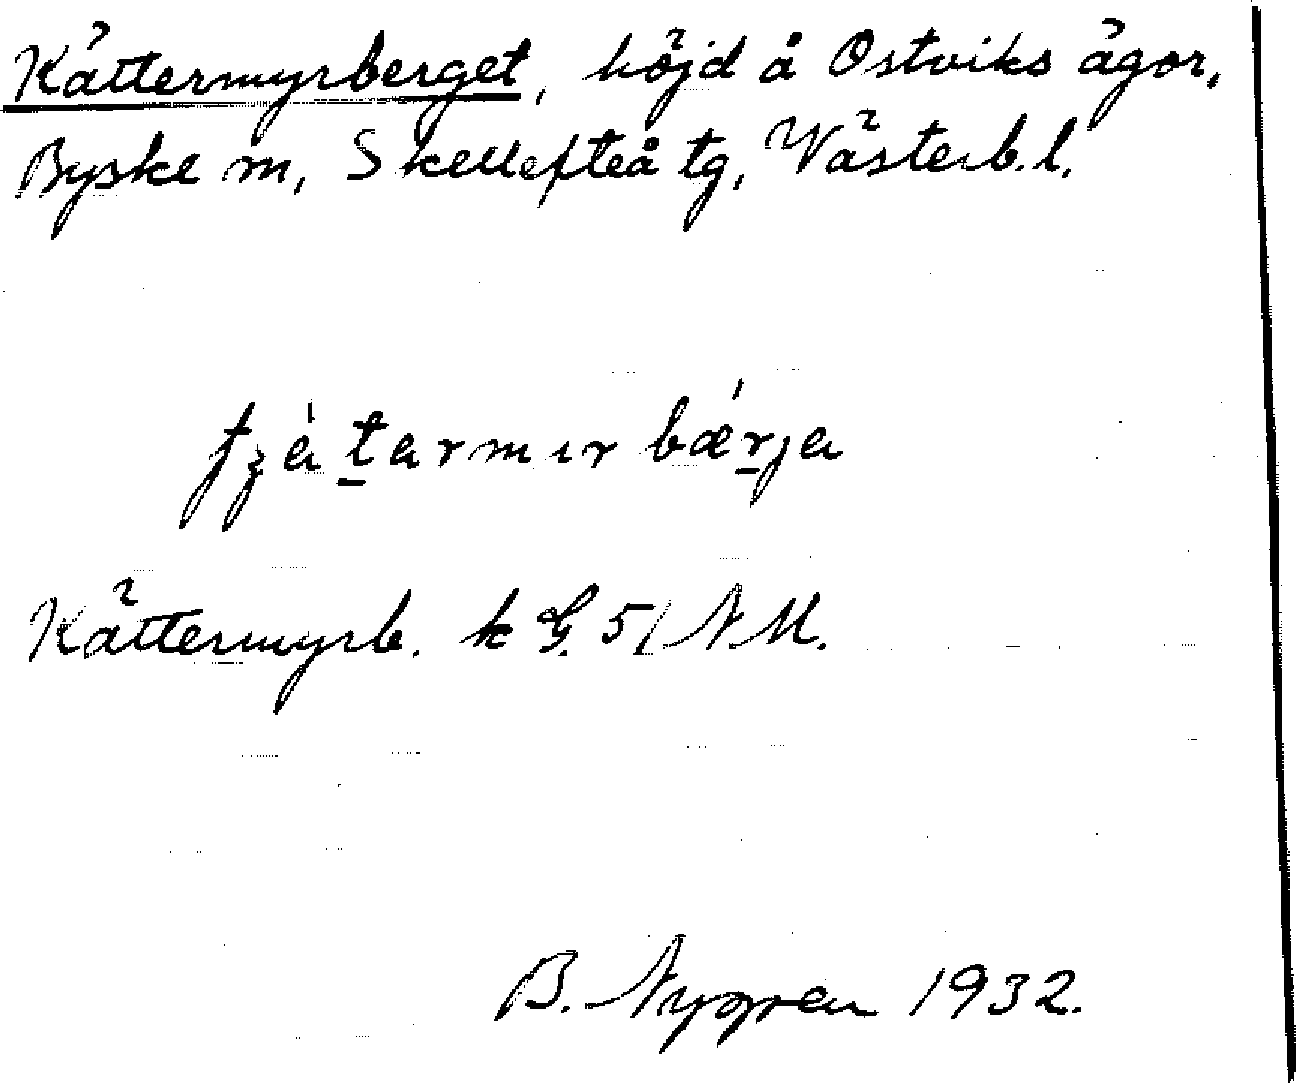 Kättermyrberget, höjd å Ostviks ägor,
Byske sn, Skellefteå tg, Västerb. l.
Kättermyrb. k G. 51 NM.
B. Nygren 1932.